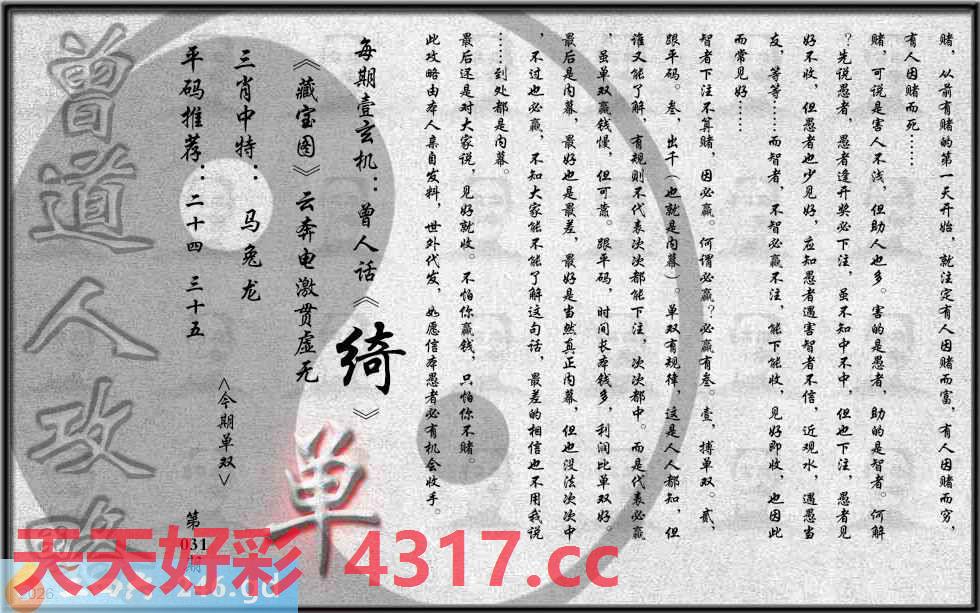 赌，从前有赌的第一天开始，就注定有人因赌而富，有人因赌而穷，
有人因赌而死……
赌，可说是害人不浅，但助人也多。害的是愚者，助的是智者。何解
？先说愚者，愚者逢开奖必下注，虽不知中不中，但也下注，愚者见
好不收，但愚者也少见好，应知愚者遇害智者不信，近观水，遇愚当
友，等等……而智者，不智必赢不注，能下能收，见好即收，也因此
而常见好……
智者下注不算赌，因必赢。何谓必赢？必赢有叁。壹，搏单双。贰，
跟平码。叁，出千（也就是内幕）。单双有规律，这是人人都知，但
谁又能了解，有规则不代表次次都能下注，次次都中。而是代表必赢
，虽单双赢钱慢，但可蓄。跟平码，时间长本钱多，利润比单双好。
最后是内幕，最好也是最差，最好是当然真正内幕，但也没法次次中
，不过也必赢，不知大家能不能了解这句话，最差的相信也不用我说
……到处都是内幕。
最后还是对大家说，见好就收。不怕你赢钱，只怕你不赌。
此攻略由本人亲自发料，世外代发，如愿信本愚者必有机会收手。
每期壹玄机：曾人话《绮》
《藏宝图》云奔电激贯虚无
三肖中特：马兔龙
平码推荐：二十四 三十五
<今期单双>
单
第
031
期
曾道人攻略
天天好彩 4317.cc
2026
246.gd